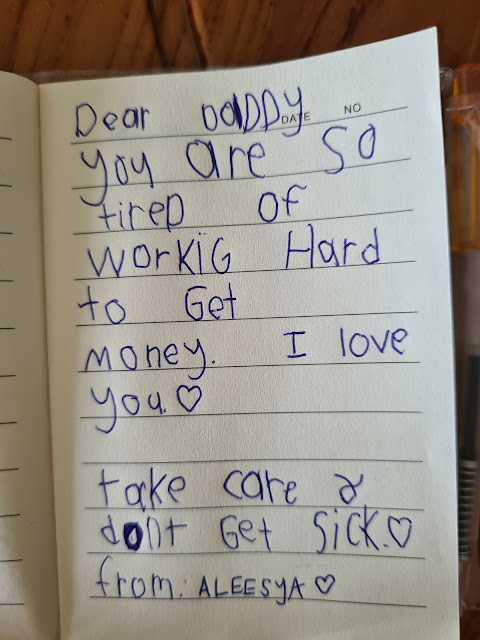 Dear DaDDy
DATE NO
you are so
tireD of
workiG Hard
to Get
money. I love
you.♡
take care &
dont Get Sick.♡
from: ALEESYA ♡